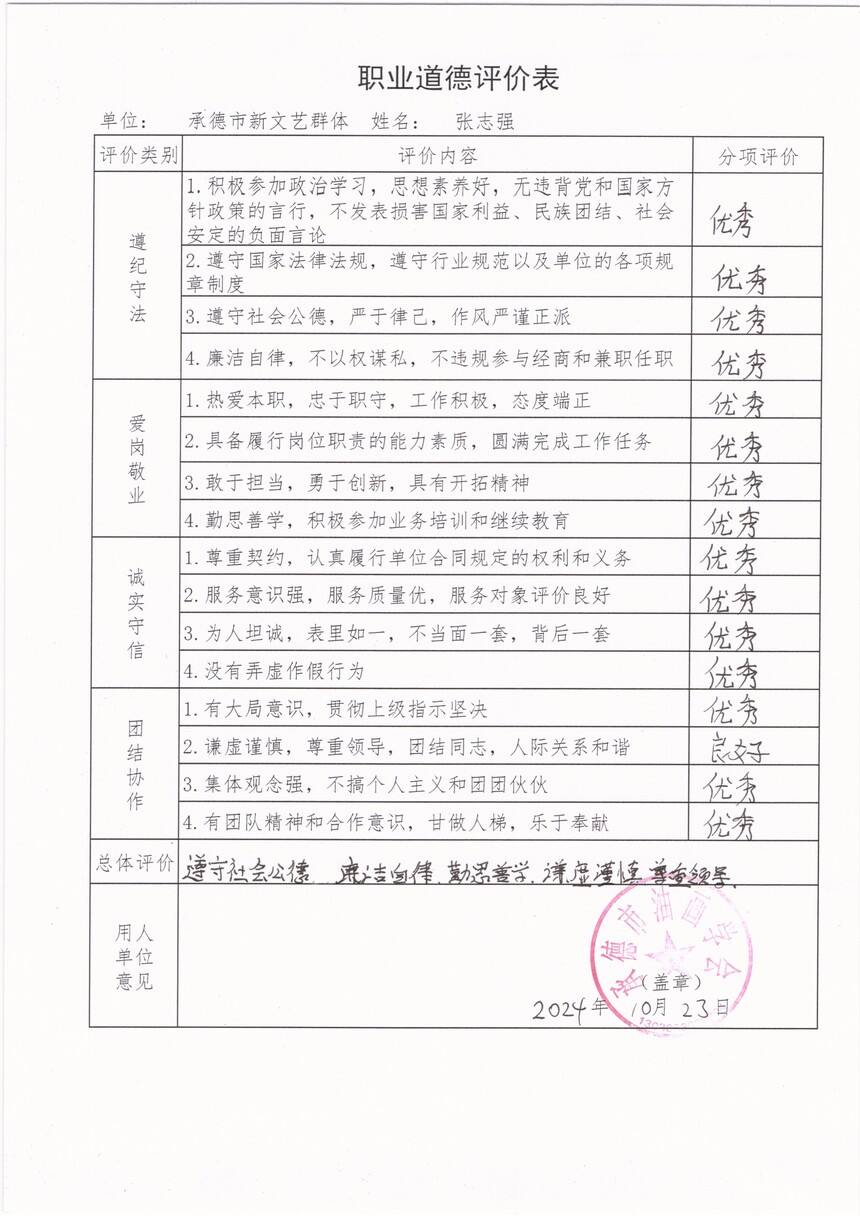 职业道德评价表
单位： 承德市新文艺群体 姓名： 张志强
评价类别 评价内容 分项评价
遵纪守法
1.积极参加政治学习，思想素养好，无违背党和国家方
针政策的言行，不发表损害国家利益、民族团结、社会
安定的负面言论
优秀
2.遵守国家法律法规，遵守行业规范以及单位的各项规
章制度
优秀
3.遵守社会公德，严于律己，作风严谨正派 优秀
4.廉洁自律，不以权谋私，不违规参与经商和兼职任职 优秀
爱岗敬业
1.热爱本职，忠于职守，工作积极，态度端正 优秀
2.具备履行岗位职责的能力素质，圆满完成工作任务 优秀
3.敢于担当，勇于创新，具有开拓精神 优秀
4.勤思善学，积极参加业务培训和继续教育 优秀
诚实守信
1.尊重契约，认真履行单位合同规定的权利和义务 优秀
2.服务意识强，服务质量优，服务对象评价良好 优秀
3.为人坦诚，表里如一，不当面一套，背后一套 优秀
4.没有弄虚作假行为 优秀
团结协作
1.有大局意识，贯彻上级指示坚决 优秀
2.谦虚谨慎，尊重领导，团结同志，人际关系和谐 良好
3.集体观念强，不搞个人主义和团团伙伙 优秀
4.有团队精神和合作意识，甘做人梯，乐于奉献 优秀
总体评价 遵守社会公德 廉洁自律.勤思善学.谦虚谨慎 尊重领导.
用人
单位
意见
承德市油画学会
（盖章）
2024年 10月 23日